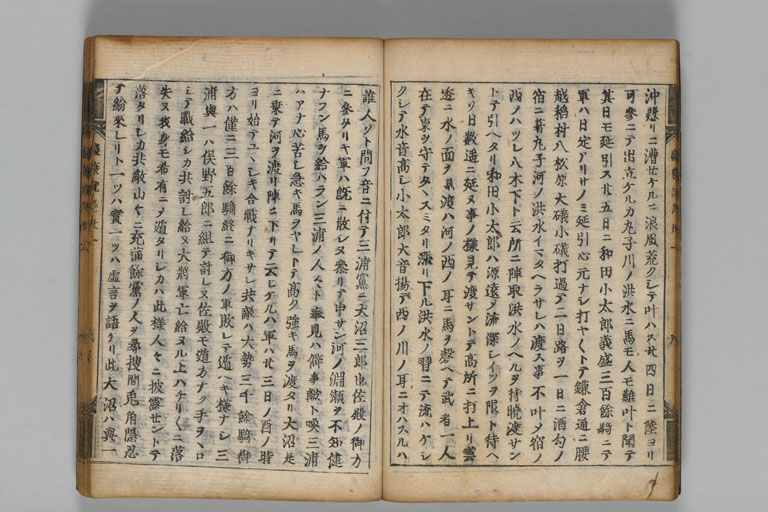 沖懸リニ漕せケルニ浪風荒クシテ叶ハス廿四日ニ陸ヨリ
可參ニテ出立ケルカ丸子川ノ洪水ニ馬モ人モ難叶ト聞テ
其日モ延引ス廿五日ニ和田小太郎義盛三百餘騎ニテ
軍ハ日定アリサノミ延引心元ナシ打ヤくトテ鎌倉通ニ腰
越稻村八松原大磯小磯打過テ二日路ヲ一日ニ酒匂ノ
宿ニ著丸子河ノ洪水イマタヘラサレハ渡ス事不叶メ宿ノ
西ノハツレ八木下ト云所ニ陣取洪水ノヘルヲ待曉渡サン
トテ引ヘタリ和田小太郎ハ源遠ケ流深レイツヲ限ト待ヘ
キソ日數遒ニ延ヌ事ノ樣見テ渡サントテ高所ニ打上リ雲
透ニ水ノ面ヲ見渡ハ河ノ西ノ耳ニ馬ヲ磬ヘテ武者一人
在テ東ヲ守テタヽスミタリ漲リ下ル洪水ノ習ニテ流ハケシ
クシテ水音高レ小太郎大音揚テ西ノ川ノ耳ニオハスルハ
誰人ソト問フ音ニ付テ三浦黨ニ大沼三郎也佐殿ノ御方
ニ參タリキ軍ハ既ニ散レヌ參リテ申サン河ノ淵瀬ヲ不知健
ナラン馬ヲ給ハラン三浦ノ人々ト奉見ハ僻事歟ト喚三浦
ハアナ心苦シ急キ馬ヲヤレトテ高ク強キ馬ヲ渡タリ大沼是
ニ乘テ河ヲ渡リ陣ニ下リテ云レケルハ軍ハ廿三日ノ酉ノ時
ヨリ始テユヽシキ合戰ナリキサレ共敵ハ大勢三千餘騎御
方ハ僅ニ三百餘騎終ニ御方ノ軍敗レテ遁ヘキ樣ナシ三
浦與一ハ俣野五郎ニ組テ討レヌ佐殿モ遁方ナク手ヲヽロ
シテ戰給レカ共討レ給ヌ大將軍亡給ヌル上ハチリくニ落
失ヌ我身モ希有ニヲ遁タリシカハ此樣人々ニ披露せントテ
落タリレカ共敵山々ニ充滿餘黨ノ人ヲ尋搜間兎角隱忍
テ紛來レリト一ツハ實一ツハ虛言ヲ語ケリ此大沼ハ與一